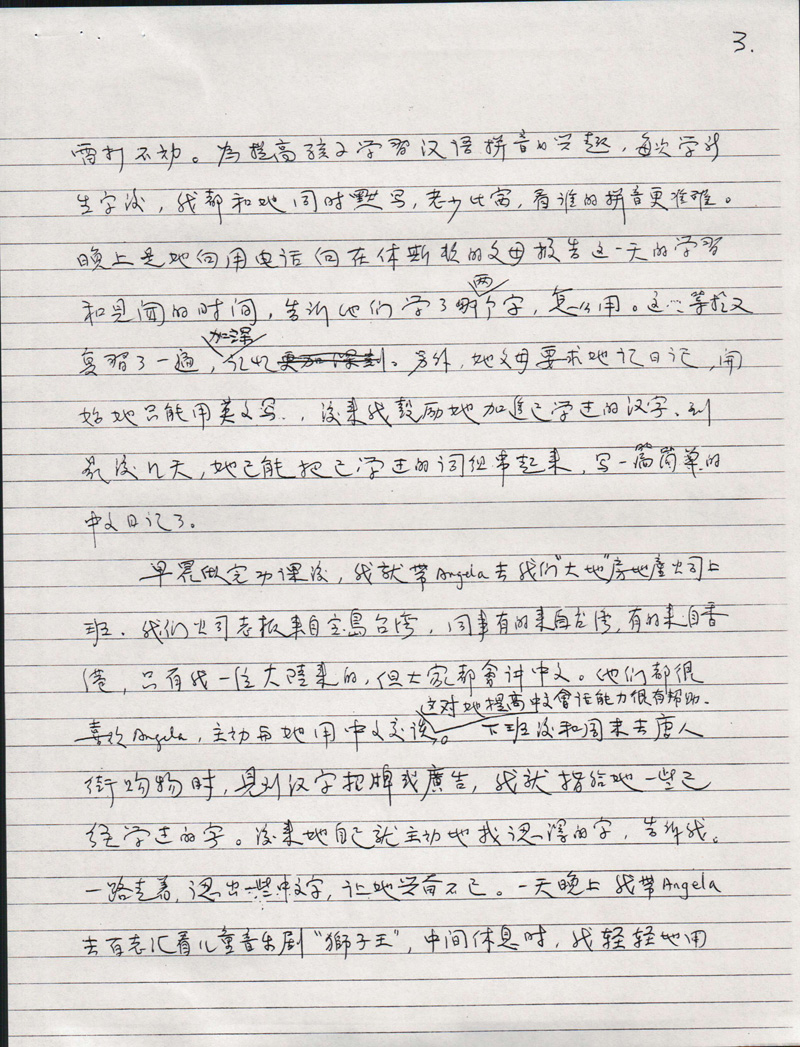 3.
雷打不动。為提高孩子学習汉语拼音的兴趣，每次学新
生字後，我都和她同时默写，老少比赛，看谁的拼音更准确。
晚上是她向用电话向在休斯敦的父母报告这一天的学習
和見闻的时间，告诉他们学了哪两个字，怎么用。这一等於又
复習了一遍，加深记忆更加深刻。另外，她父母要求她记日记，開
始她只能用英文写．，後来我鼓励她加進已学过的汉字、到
最後几天，她已能把已学过的词组串起来，写一篇简单的
中文日记了。
早晨做完功课後，我就带Angela去我们“大地”房地產公司上
班．我们公司老板来自宝島台湾，同事有的来自台湾，有的来自香
港，只有我一位大陸来的，但大家都會讲中文。他们都很
喜欢Angela，主动与她用中文交谈，这对她提高中文會话能力很有帮助．下班後和周末去唐人
街购物时，見到汉字招牌或廣告，我就指给她一些已
经学过的字。後来她自己就主动地找認得的字，告诉我。
一路走着，認出一些中文字，让她兴奋不已。一天晚上我带Angela
去百老汇看儿童音乐剧“獅子王”，中间休息时，我轻轻地用